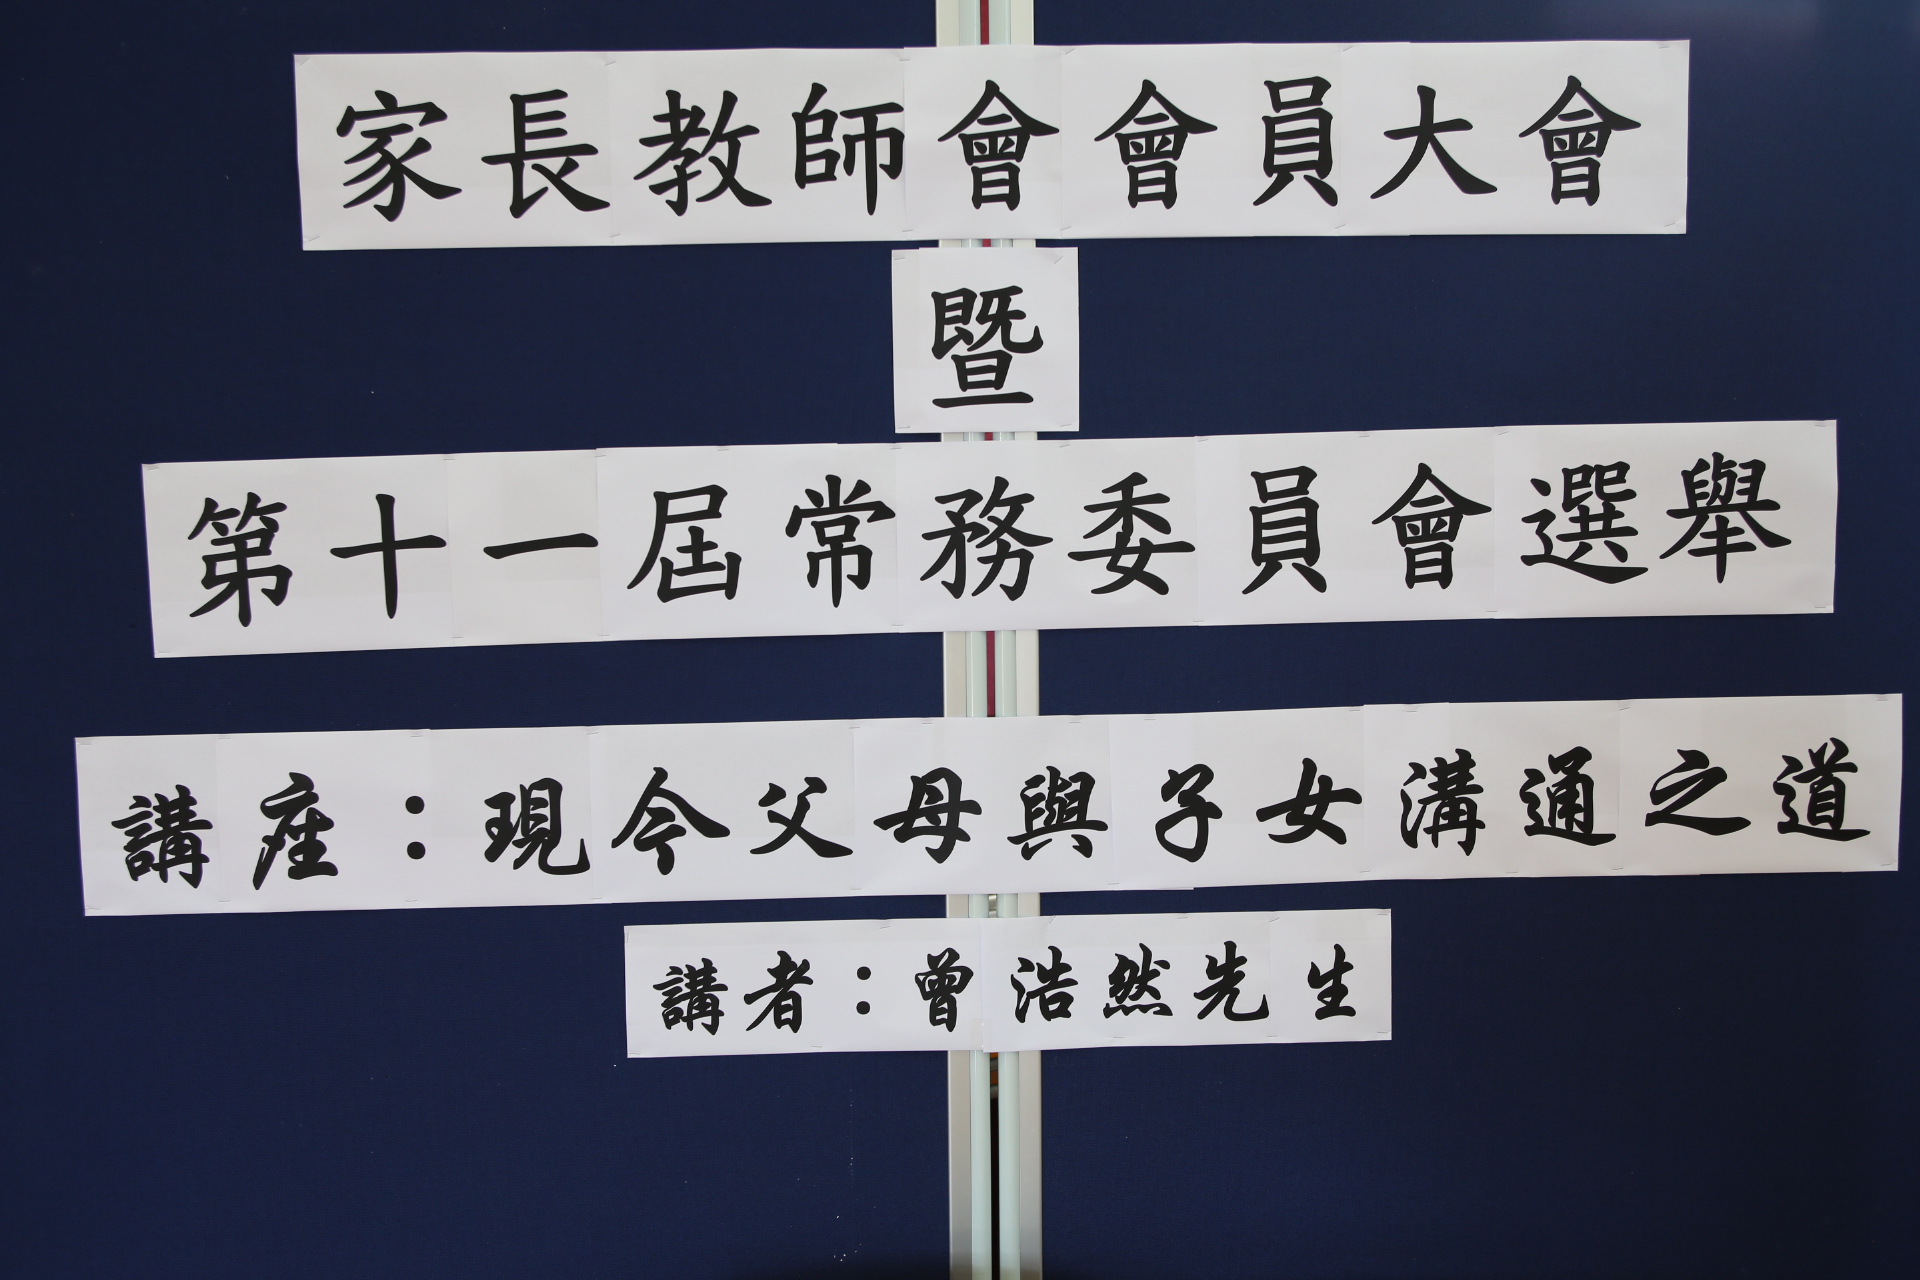 家長教師會會員大會
暨
第十一屆常務委員會選舉
講座：現今父母與子女溝通之道
講者：曾浩然先生